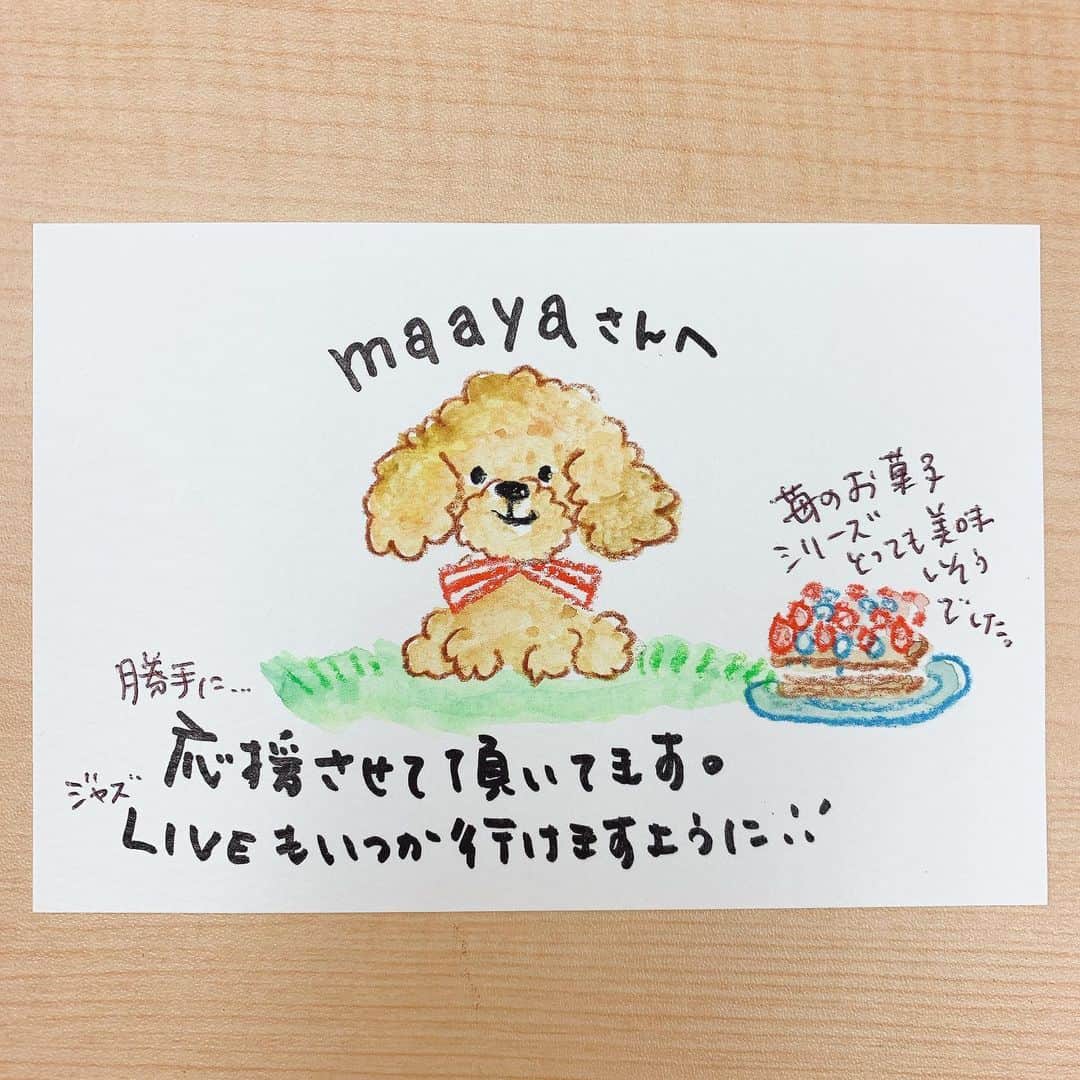 maayaさんへ
苺のお菓子
シリーズ
とっても美味
しそう
でした。
勝手に...
応援させて頂いてます。
ジャズ
LIVEもいつか行けますように∵